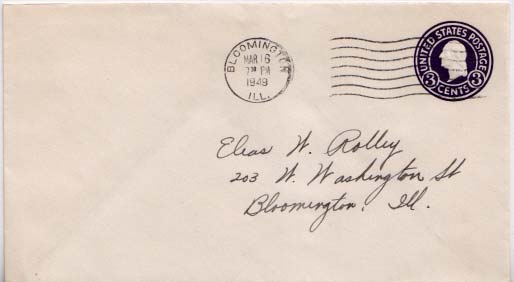 BLOOMINGTON
MAR 16
7 30 PM
1949
ILL.
UNITED STATES POSTAGE
3 CENTS 3
Elias W. Rolley
203 W. Washington St
Bloomington, Ill.